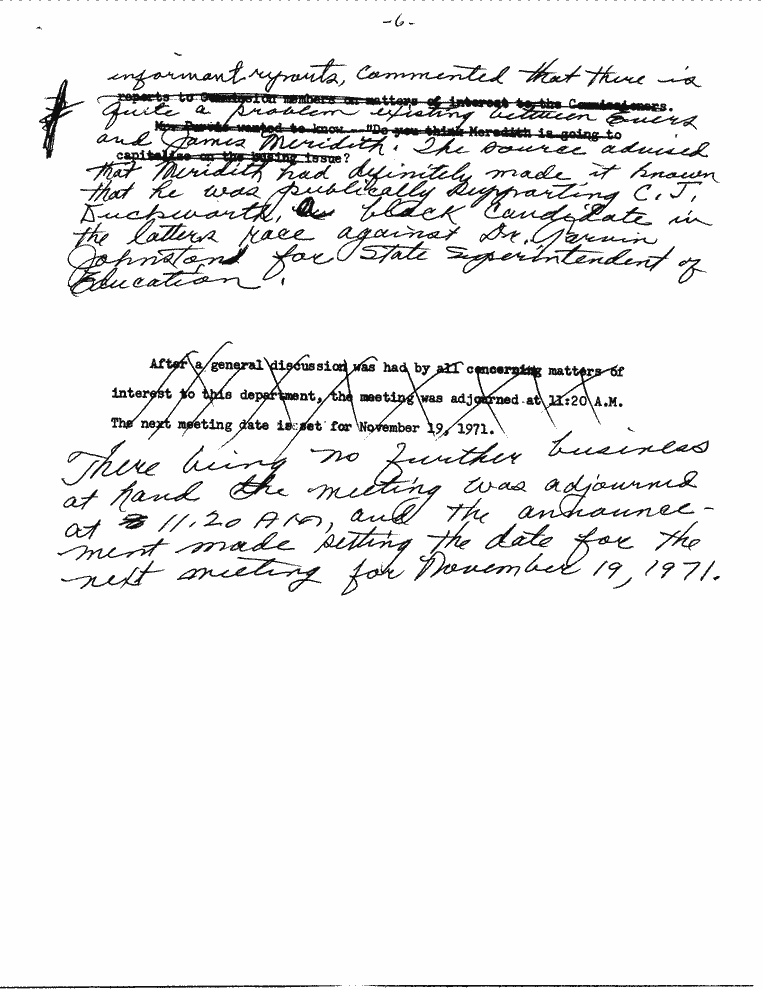 -6-
informant reports, commented that there is
reports to Commission members on matters of interest to the Commissioners.
quite a problem existing between Evers
Mr. Purvis wanted to know - "Do you think Meredith is going to
and James Meridith. The source advised
capitalize on the busing issue?
that Meridith had definitely made it known
that he was publically supporting C.J.
Duckworth, a black candidate in
the latters race against Dr. Jarvin
Johnston for State Superintendent of
Education.
After a general discussion was had by all concerning matters of
interest to this department, the meeting was adjourned at 11:20 A.M.
The next meeting date is set for November 19, 1971.
There being no further business
at hand the meeting was adjourned
at 11.20 AM, and the announce-
ment made setting the date for the
next meeting for November 19, 1971.